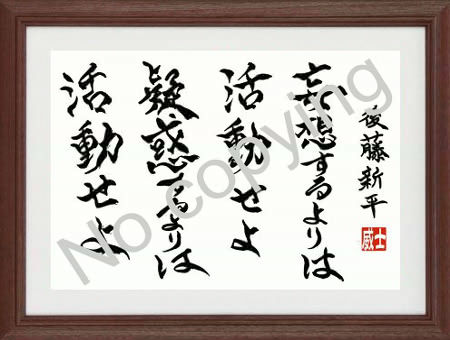 後藤新平
士威
妄想するよりは
活動せよ
疑惑するよりは
活動せよ
No copying